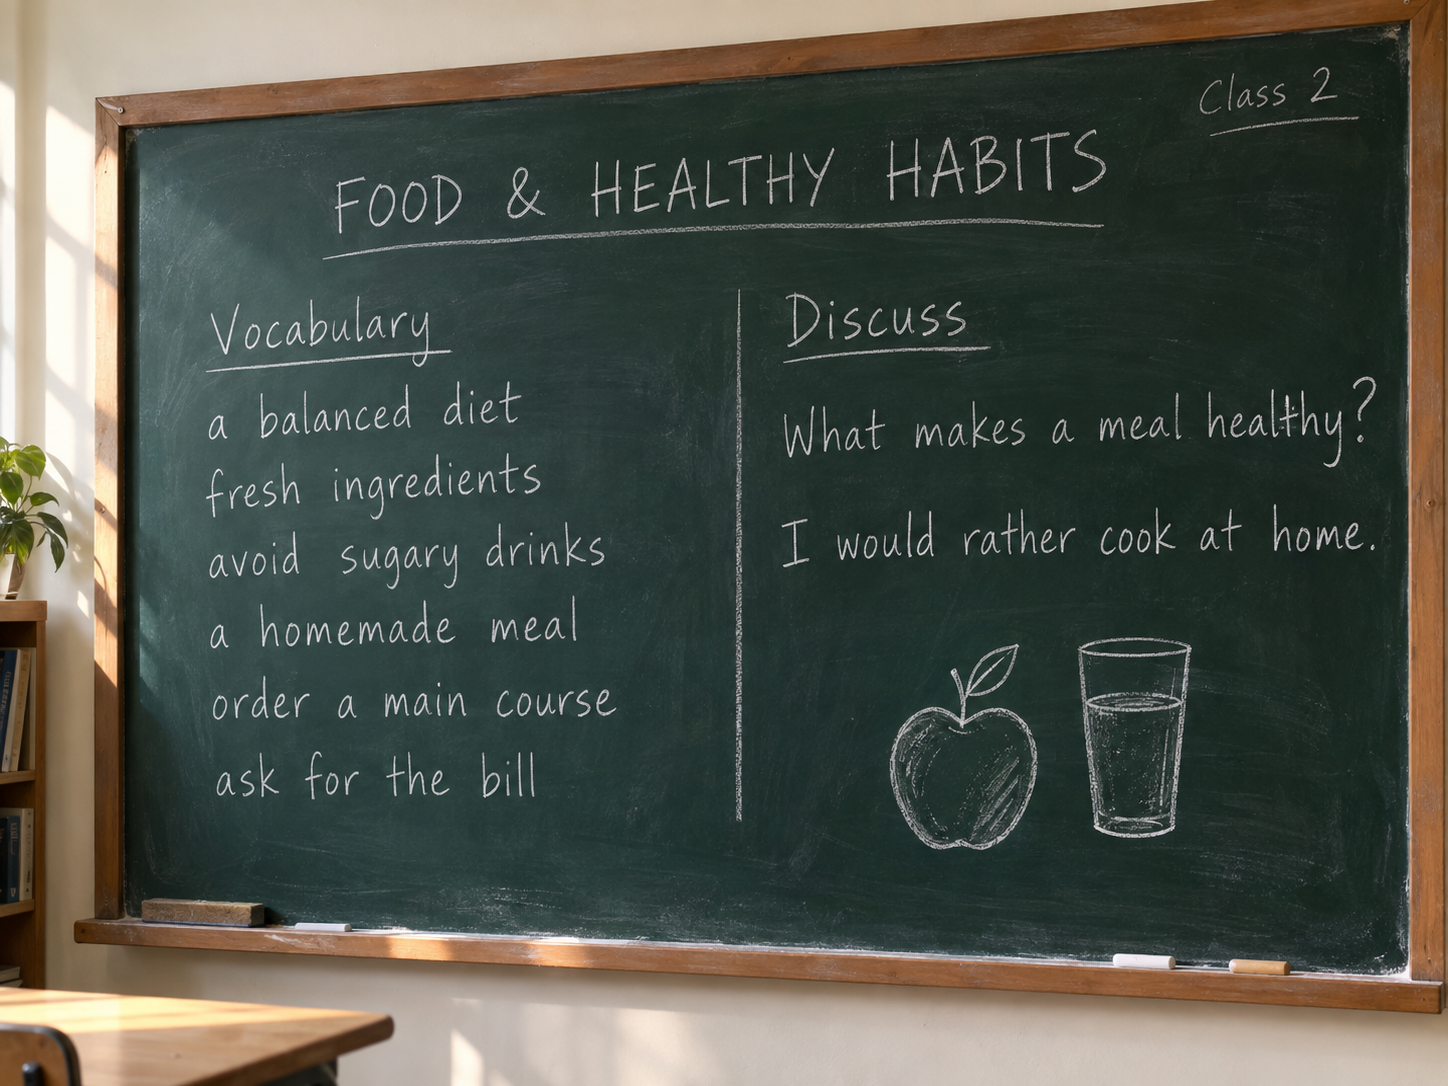 Class 2
FOOD & HEALTHY HABITS
Vocabulary
a balanced diet
fresh ingredients
avoid sugary drinks
a homemade meal
order a main course
ask for the bill
Discuss
What makes a meal healthy?
I would rather cook at home.